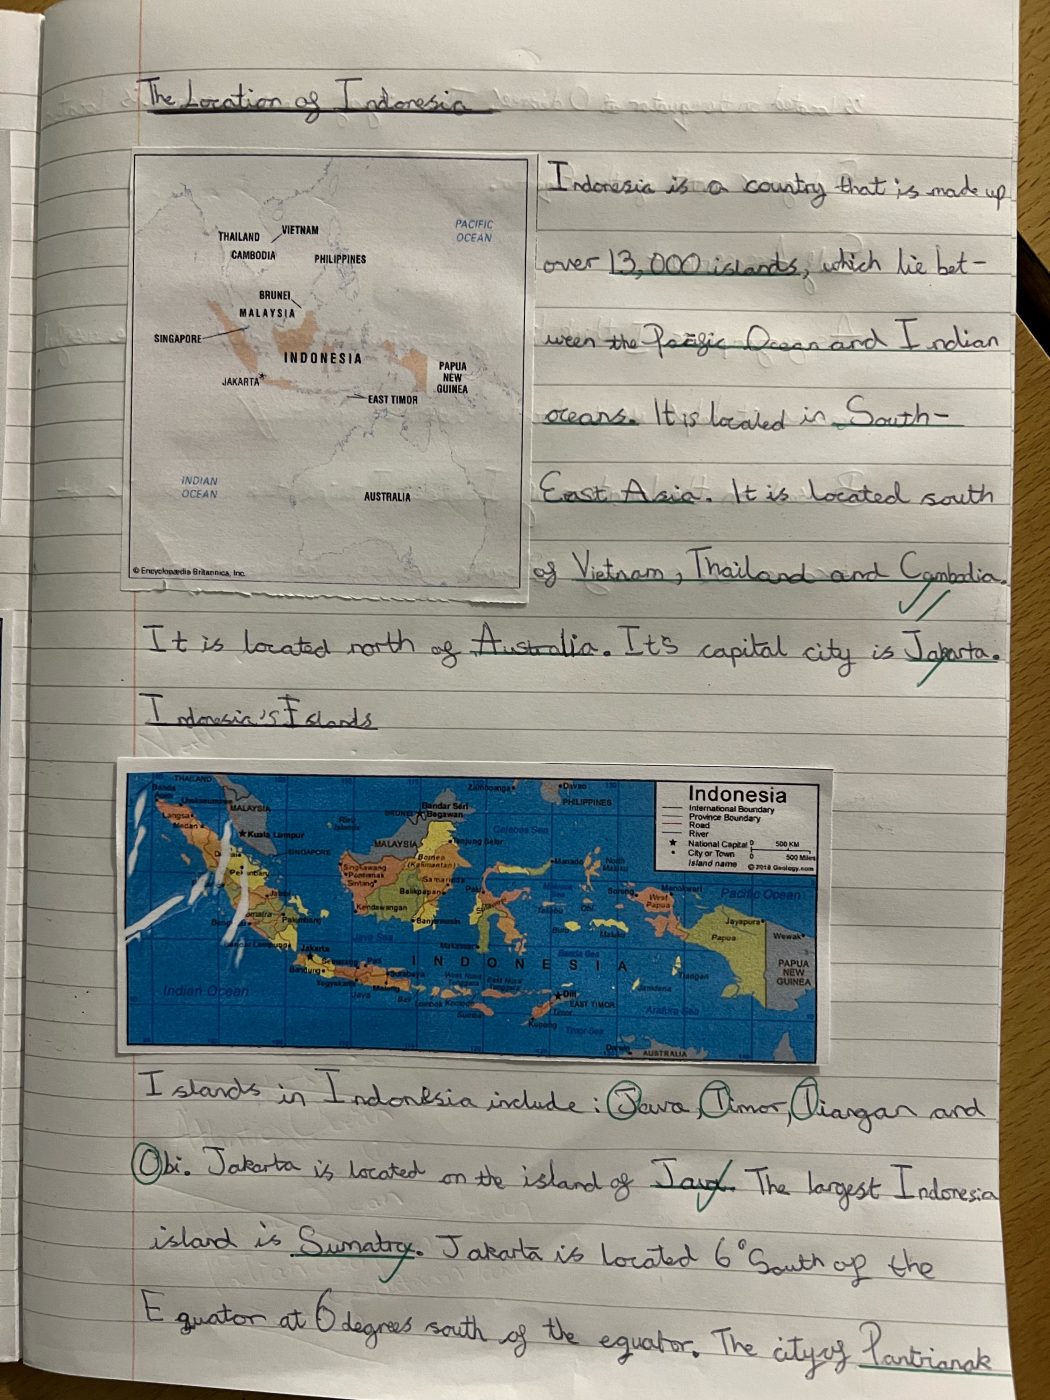 The Location of Indonesia
THAILAND
VIETNAM
CAMBODIA
PHILIPPINES
PACIFIC
OCEAN
BRUNEI
MALAYSIA
SINGAPORE
INDONESIA
JAKARTA
PAPUA
NEW
GUINEA
EAST TIMOR
INDIAN
OCEAN
AUSTRALIA
© Encyclopædia Britannica, Inc.
Indonesia is a country that is made up
over 13,000 islands, which lie bet-
ween the Pacific Ocean and Indian
oceans. It is located in South-
East Asia. It is located south
of Vietnam, Thailand and Cambodia.
It is located north of Australia. It's capital city is Jakarta.
Indonesia's Islands
THAILAND
Banda
Langsa
Medan
MALAYSIA
Kuala Lumpur
SINGAPORE
Zamboanga
Davao
PHILIPPINES
Bandar Seri
Begawan
BRUNEI
MALAYSIA
Tanjung Selor
Celebes Sea
Borneo
(Kalimantan)
Singkawang
Pontianak
Sintang
Samarinda
Balikpapan
Kendawangan
Banjarmasin
Palu
Manado
North
Maluku
Sorong
Manokwari
West
Papua
Pacific Ocean
Jayapura
Papua
Wewak
PAPUA
NEW
GUINEA
Obi
Buru
Maluku
Makassar
Java Sea
Banda Sea
Palembang
Jakarta
Bandung
Semarang
Surabaya
Java
Malang
Bali
Lombok
Sumba
Kupang
Timor
Dili
EAST TIMOR
Timor Sea
Arafura Sea
Darwin
AUSTRALIA
INDONESIA
Indian Ocean
Indonesia
International Boundary
Province Boundary
Road
River
National Capital
City or Town
Island name
500 KM
500 Miles
© 2018 Geology.com
Islands in Indonesia include: Java, Timor, Tiangan and
Obi. Jakarta is located on the island of Java. The largest Indonesia
island is Sumatra. Jakarta is located 6° South of the
Equator at 6 degrees south of the equator. The city of Pantrianak